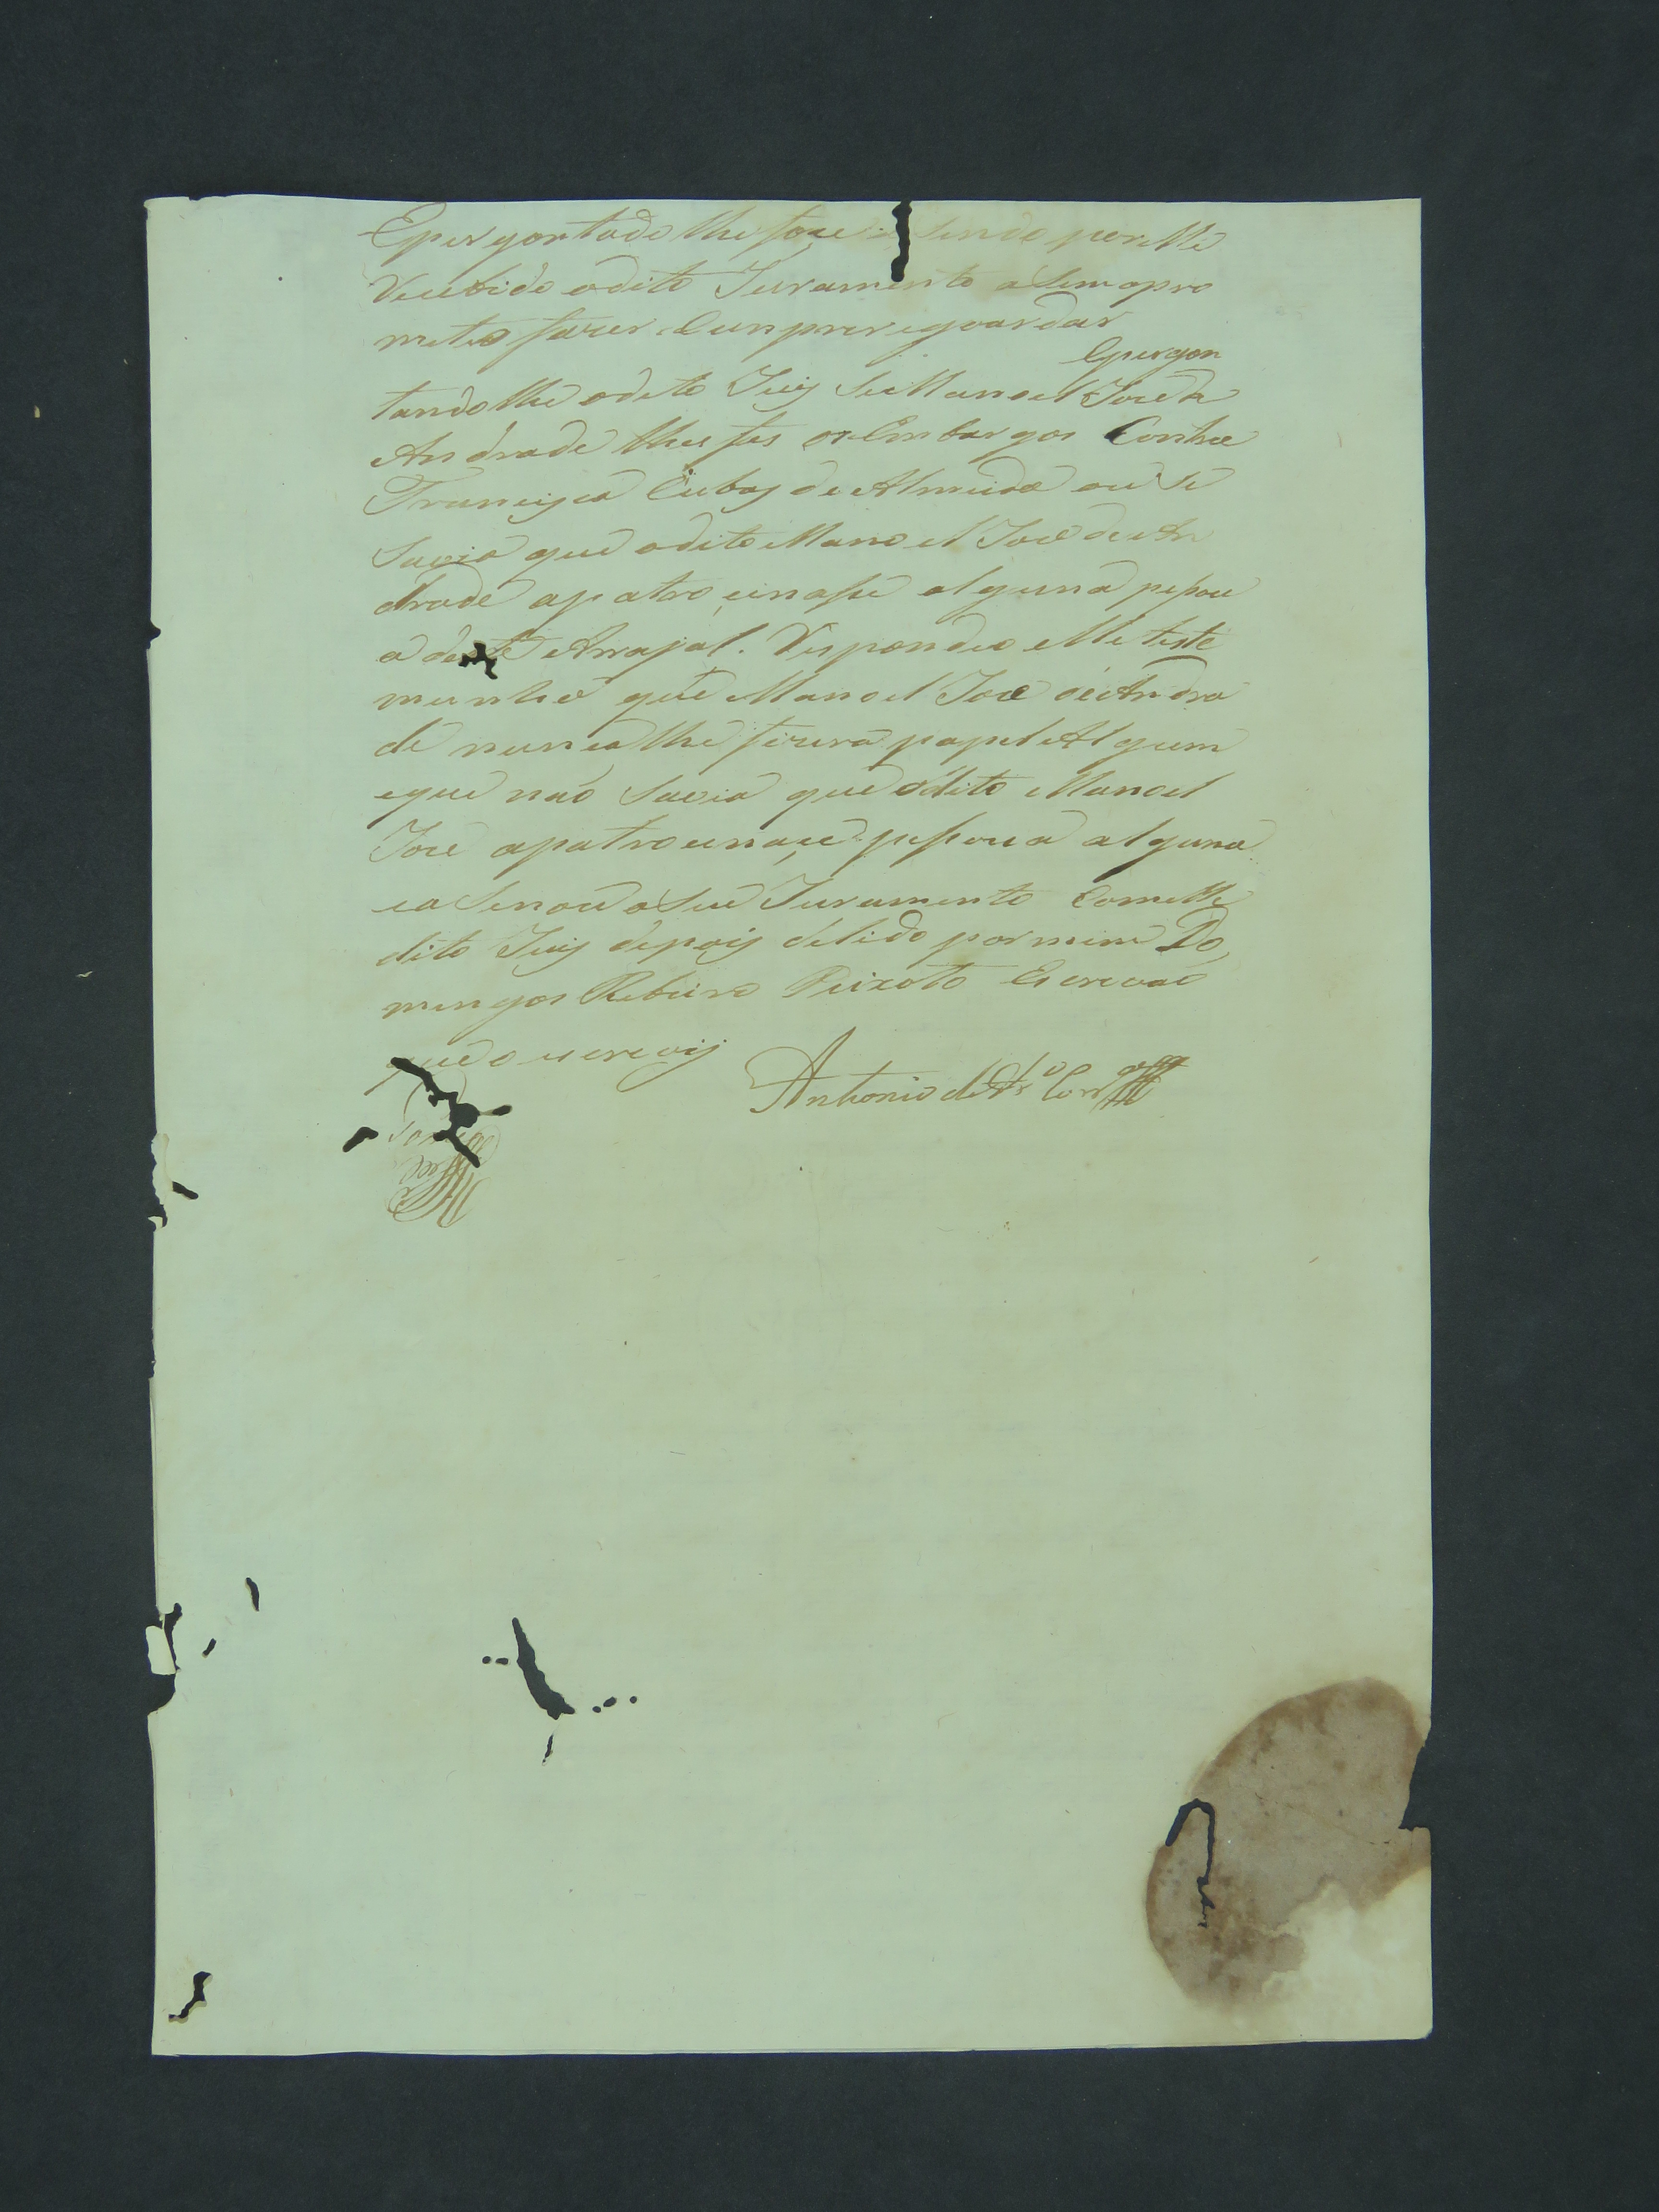 Epergontado lhe foce sendo por elle
Recebido odito Juramento asim opro
meteo fazer Cumprir eguardar
Epergon
tandolhe odito Juiz se Manoel Joze de
Andrade lhes fes os Embargos Contra
Francisca Cubas de Almeida ou se
Savia que odito Manoel Joze de An
drade apatrocinasse alguma pessou
a deste Arrayal. Respondeo elle teste
munha que Manoel Joze de Andra
de nunca lhe fizera papel Algum
eque não Savia que odito Manoel
Joze apatrocinace pessoua alguma
easenou o seu Juramento Com elle
dito Juiz depois de lido por mim Do
mingos Ribeiro Peixoto Escrevão
que o escrevij
Antonio de Corr